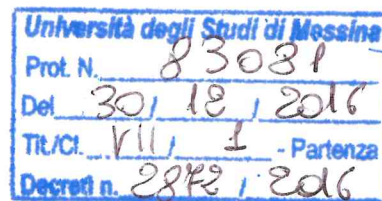 Università degli Studi di Messina
Prot. N. 83081
Del 30 / 12 / 2016
Tit./Cl. VII / 1 - Partenza
Decreti n. 2872 / 2016